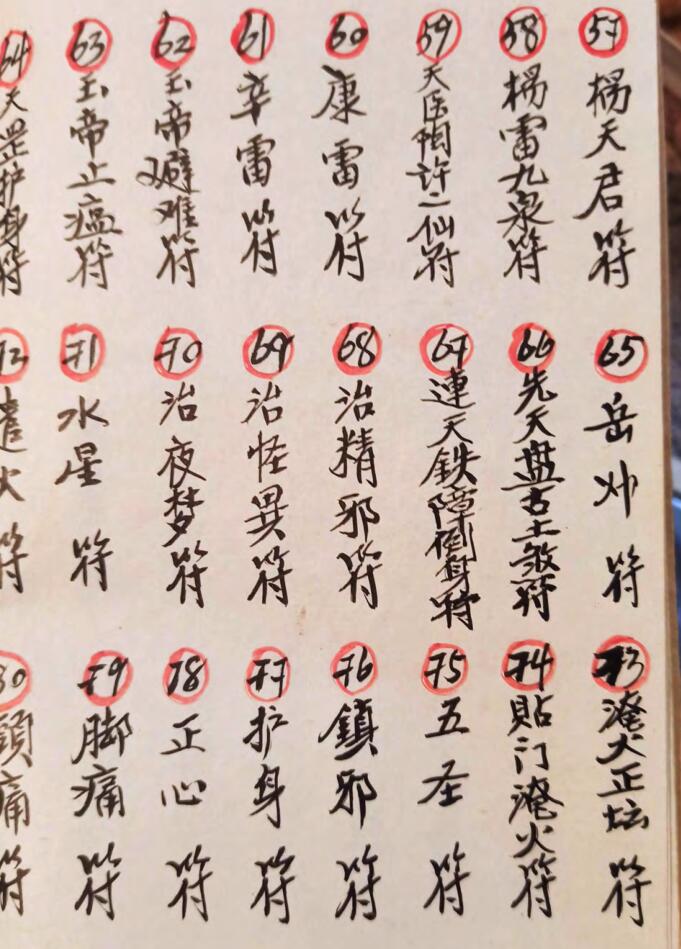 57 楊天君符
58 楊雷九泉符
59 天医陶許二仙符
60 康雷符
61 辛雷符
62 玉帝避难符
63 玉帝止瘟符
64 天罡护身符
65 岳 符
66 先天盘古土煞符
67 連天鉄障倒身符
68 治精邪符
69 治怪異符
70 治夜梦符
71 水星符
72 遣火符
73 淹火正坛符
74 貼门淹火符
75 五圣符
76 鎮邪符
77 护身符
78 正心符
79 脚痛符
80 頭痛符